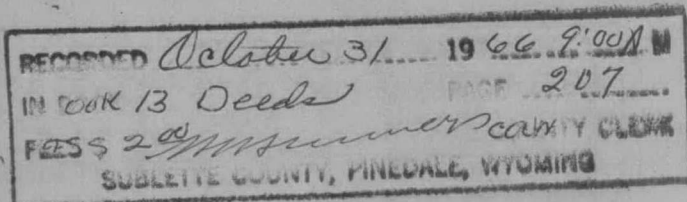 RECORDED October 31 1966 9:00A M
IN BOOK 13 Deeds PAGE 207
FEES $ 2.00 COUNTY CLERK
SUBLETTE COUNTY, PINEDALE, WYOMING